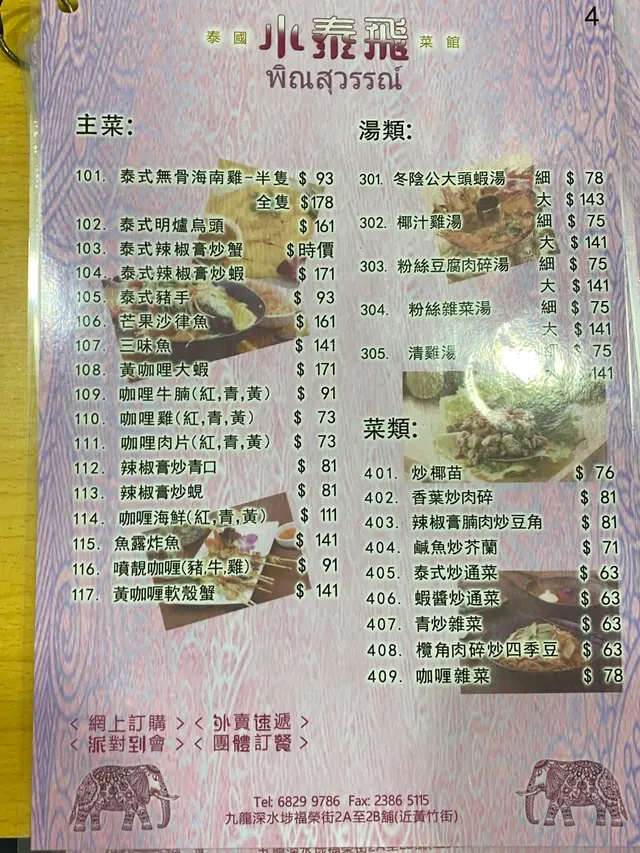 4
泰國 小泰飛 菜館
พิณสุวรรณ์
主菜:
101. 泰式無骨海南雞-半隻 $ 93
全隻 $178
102. 泰式明爐烏頭 $ 161
103. 泰式辣椒膏炒蟹 $時價
104. 泰式辣椒膏炒蝦 $ 171
105. 泰式豬手 $ 93
106. 芒果沙律魚 $ 161
107. 三味魚 $ 141
108. 黃咖哩大蝦 $ 171
109. 咖哩牛腩(紅,青,黃) $ 91
110. 咖哩雞(紅,青,黃) $ 73
111. 咖哩肉片(紅,青,黃) $ 73
112. 辣椒膏炒青口 $ 81
113. 辣椒膏炒蜆 $ 81
114. 咖喱海鮮(紅,青,黃) $ 111
115. 魚露炸魚 $ 141
116. 噴靚咖喱(豬,牛,雞) $ 91
117. 黃咖喱軟殼蟹 $ 141
湯類:
301. 冬陰公大頭蝦湯 細 $ 78
大 $ 143
302. 椰汁雞湯 細 $ 75
大 $ 141
303. 粉絲豆腐肉碎湯 細 $ 75
大 $ 141
304. 粉絲雜菜湯 細 $ 75
大 $ 141
305. 清雞湯 細 $ 75
141
菜類:
401. 炒椰苗 $ 76
402. 香葉炒肉碎 $ 81
403. 辣椒膏腩肉炒豆角 $ 81
404. 鹹魚炒芥蘭 $ 71
405. 泰式炒通菜 $ 63
406. 蝦醬炒通菜 $ 63
407. 青炒雜菜 $ 63
408. 欖角肉碎炒四季豆 $ 63
409. 咖喱雜菜 $ 78
< 網上訂購 > < 外賣速遞 >
< 派對到會 > < 團體訂餐 >
Tel: 6829 9786 Fax: 2386 5115
九龍深水埗福榮街2A至2B舖(近黃竹街)